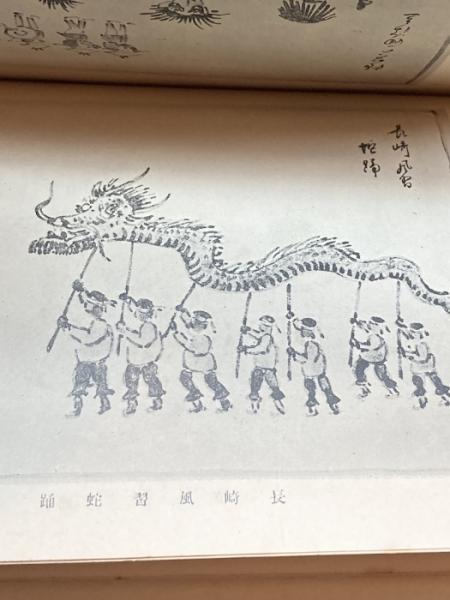 長崎風習
蛇踊
長崎風習蛇踊